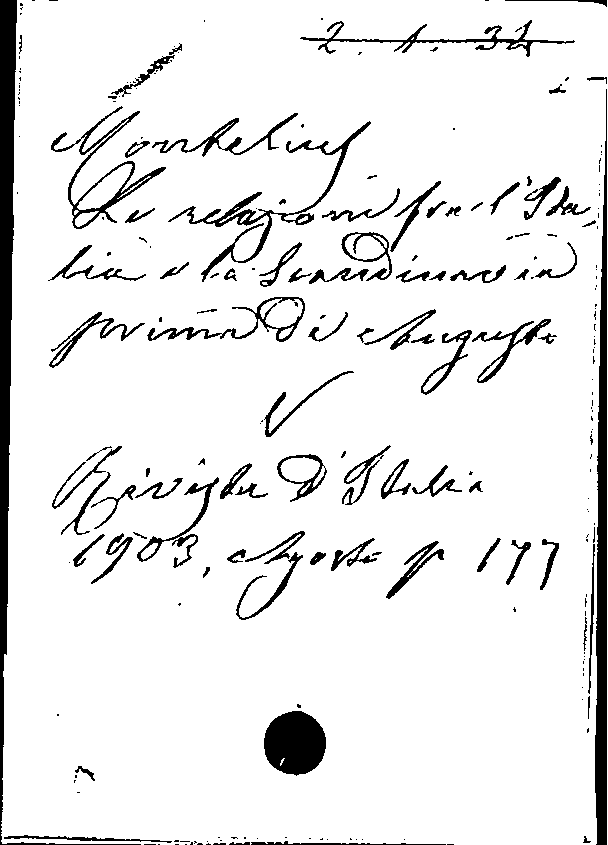 2. 1. 32
Montelius
Le relazioni fra l'Ita-
lia e la Scandinavia
prima di Augusto
Rivista d'Italia
1903, Agosto p 177